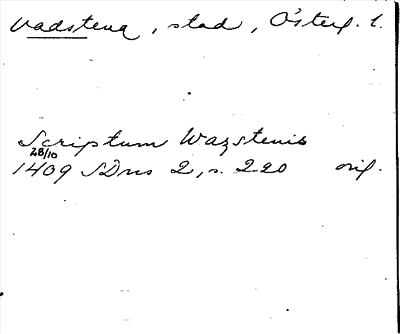 Vadstena, stad, Österg. l.
Scriptum Wazstenis
28/10
1409 SDns 2, s. 220 orig.